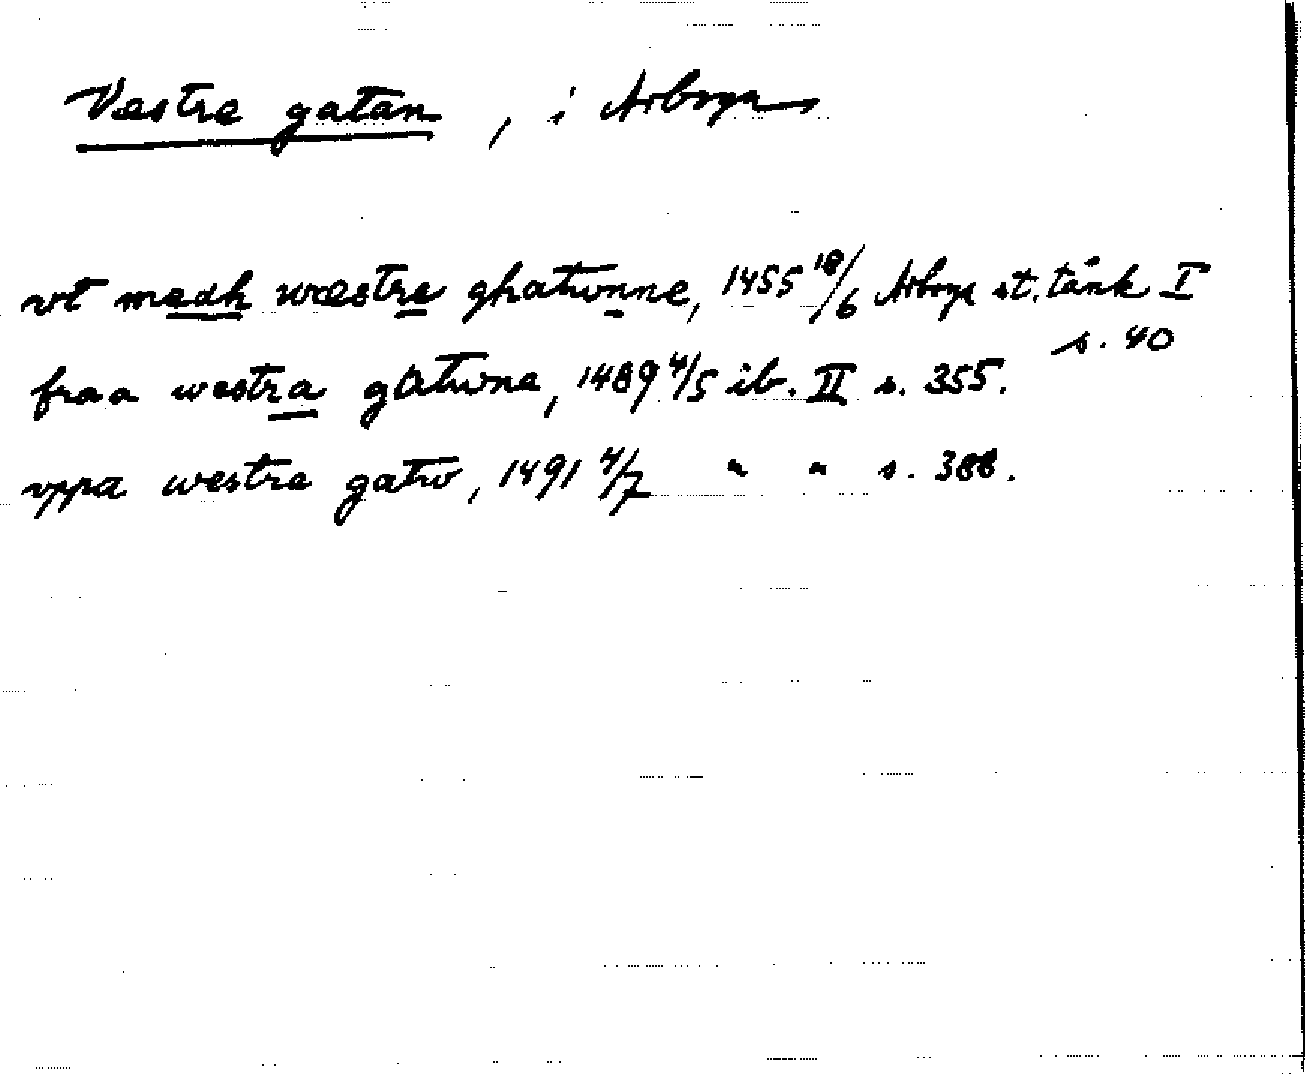 Vestre gatan, i Arboga
vt medh wæstre ghatwnne, 1455 18/6 Arboga st. tänk I
s. 40
fraa westra gatwne, 1489 4/5 ib. II s. 355.
vppa westra gatw, 1491 4/7 " " s. 388.